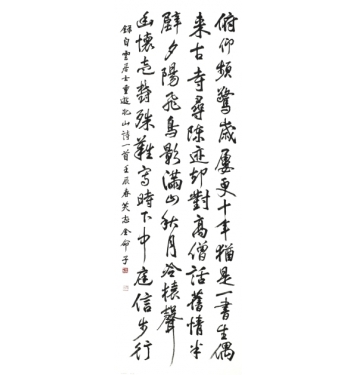 俯仰頻驚歲屢更十年猶是一書生偶
来古寺尋陳迹却對高僧話舊情半
壁夕陽飛鳥影滿山秋月冷猿聲
幽懷殊難寫時下中庭信步行
雲居士重遊山詩一首壬辰春